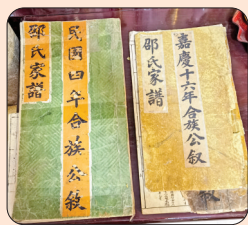 邵氏家譜
民國四年合族公敘
嘉慶十六年合族公叙
邵氏家譜